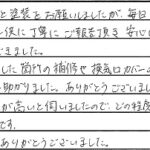 と塗装をお願いしましたが、毎日
に丁寧にご報告頂き安心し
できました。
した箇所の補修や換気口カバーの
助かりました。ありがとうござい
が高いと伺いましたので、どの程度
です。
ありがとうございました。